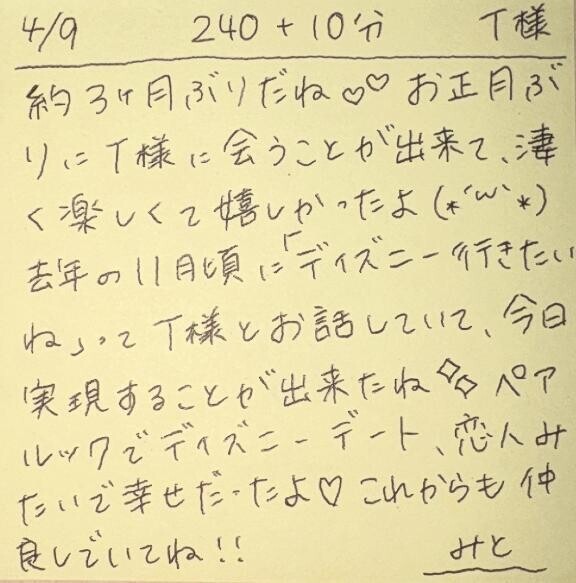 4/9 240+10分 T様
約3ヶ月ぶりだね♡♡ お正月ぶ
りにT様に会うことが出来て、凄
く楽しくて嬉しかったよ(*´ω`*)
去年の11月頃に「ディズニー行きたい
ね」ってT様とお話していて、今日
実現することが出来たね✧✧ ペア
ルックでディズニーデート、恋人み
たいで幸せだったよ♡ これからも仲
良しでいてね!!
みと